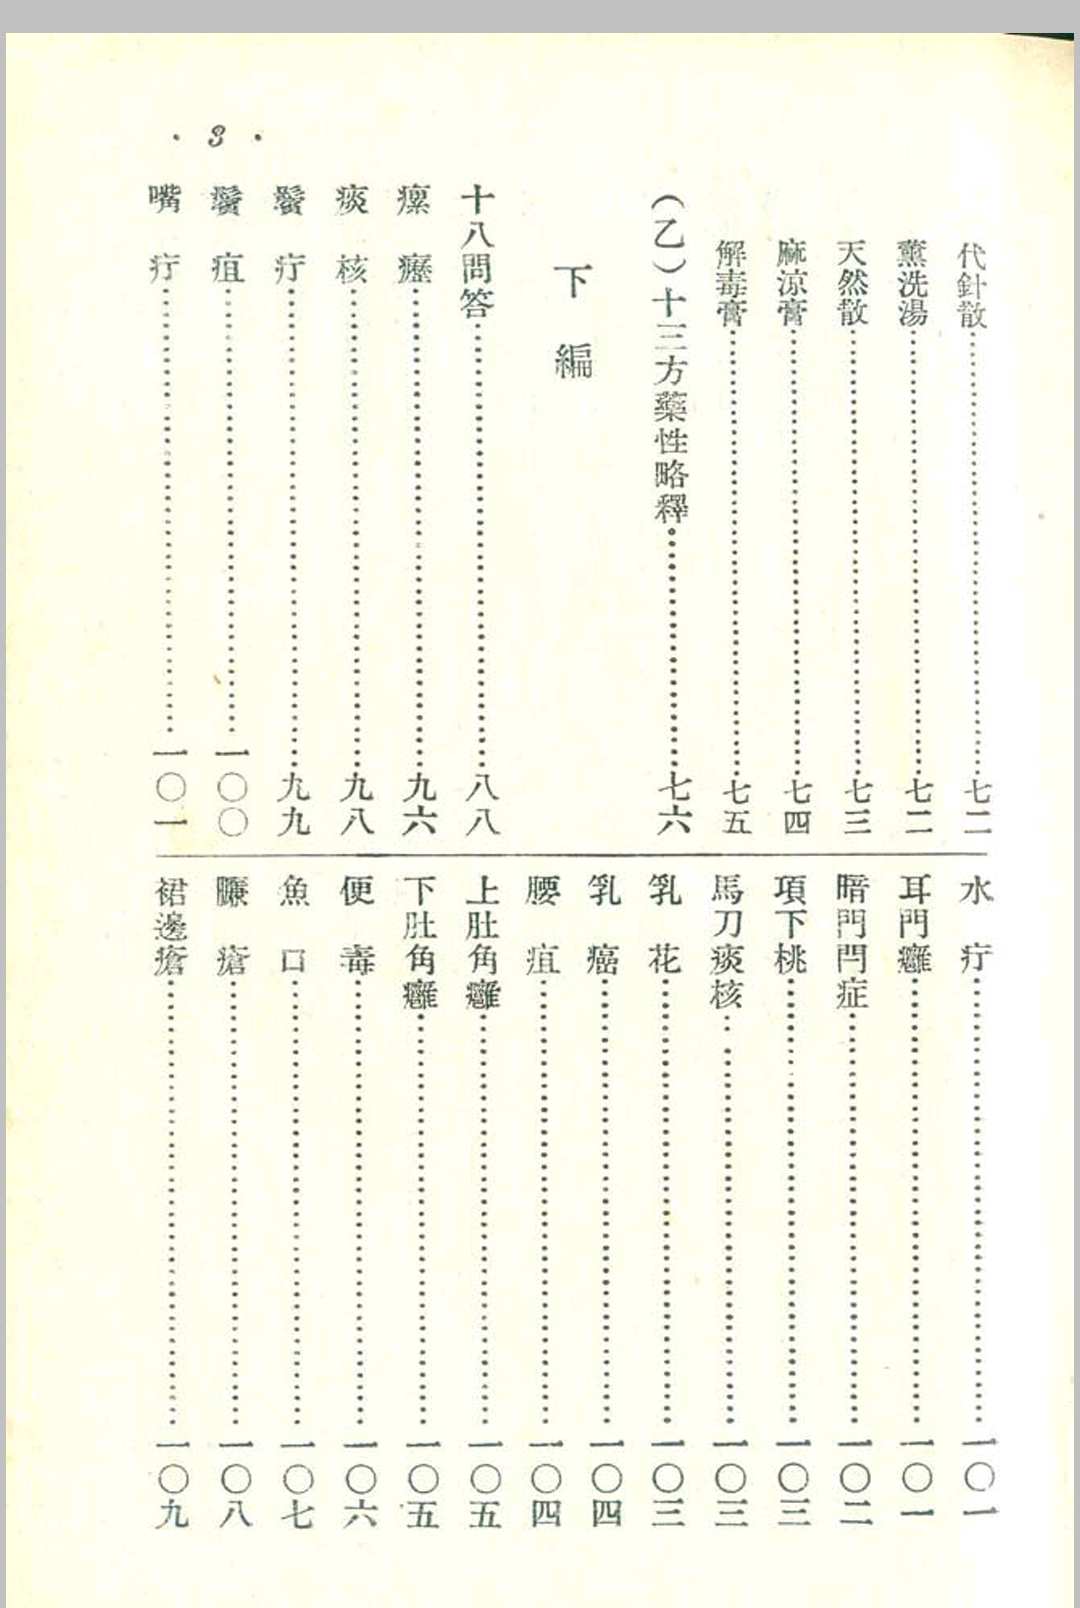 · 3 ·
代針散……七二
薰洗湯……七二
天然散……七三
麻涼膏……七四
解毒膏……七五
(乙)十三方藥性略釋……七六
下編
十八問答……八八
瘰癧……九六
痰核……九八
鬢疔……九九
鬢疽……一〇〇
嘴疔……一〇一
水疔……一〇一
耳門癰……一〇一
暗門閂症……一〇二
項下桃……一〇三
馬刀痰核……一〇三
乳花……一〇三
乳癌……一〇四
腰疽……一〇四
上肚角癰……一〇五
下肚角癰……一〇五
便毒……一〇六
魚口……一〇七
臁瘡……一〇八
裙邊瘡……一〇九